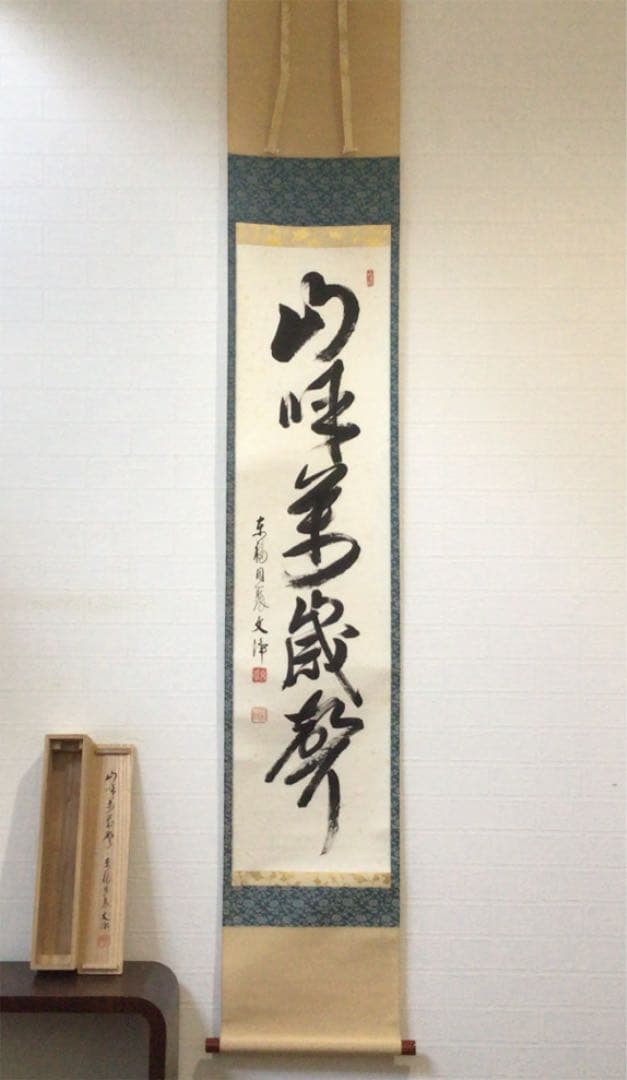 山呼萬歳聲
東福目衷文沖
山呼萬歳聲 東福目衷文沖